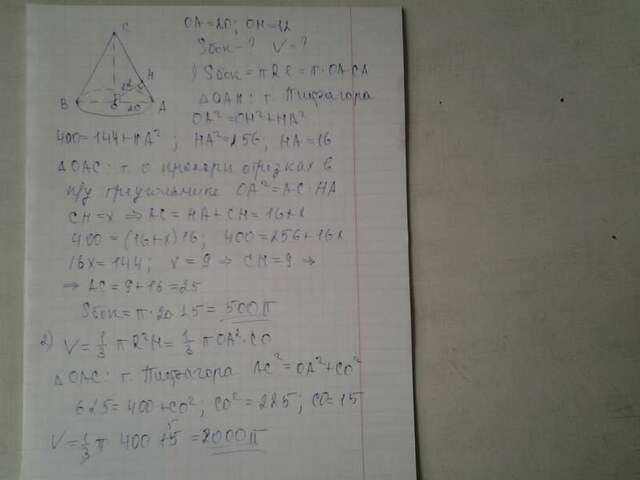 C
H
B
A
12
20
OA=20; OH=12
Sбок-? V-?
1) Sбок = πRL = π·OA·CA
△OAH: т. Пифагора
OA²=OH²+HA²
400=144+HA²; HA²=256, HA=16
△OAC: т. о пропорц отрезках в
п/у треугольнике OA²=AC·HA
CH=x ⇒ AC = HA+CH=16+x
400=(16+x)16; 400=256+16x
16x=144; x=9 ⇒ CH=9 ⇒
⇒ AC=9+16=25
Sбок=π·20·25=500π
2) V=1/3 πR²H=1/3 πOA²·CO
△OAC: т. Пифагора AC²=OA²+CO²
625=400+CO²; CO²=225; CO=15
V=1/3 π 400 15 5 =2000π